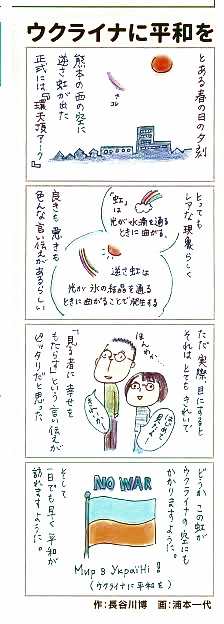 ウクライナに平和を
とある春の日の夕刻
熊本の西の空に
逆さ虹が出た
正式には『環天頂アーク』
↑
コレ
とっても
レアな現象らしく
「虹」は
光が水滴を通る
ときに曲がる。
逆さ虹は
光が氷の結晶を通る
ときに曲がることで発生する
良きも悪きも
色んな言い伝えがあるらしい
ただ実際、目にすると
それはとてもきれいで
ほんわか…
はじめて
見た…!
きれいだー
「見る者に幸せを
もたらす」という言い伝えが
ピッタリだと思った
どうかこの虹が
ウクライナの空にも
かかりますように。
NO WAR
そして
一日でも早く平和が
訪れますように。
Мир в Україні!
(ウクライナに平和を)
作:長谷川博 画:浦本一代